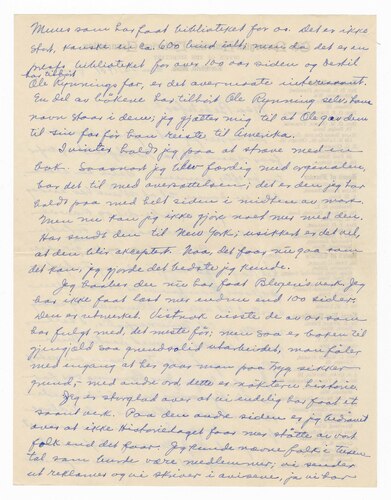 Menes som har faat biblioteket for os. Det er ikke
stort, kanske en ca. 600 bind ialt; men da det er en
prests bibliotek for over 100 aar siden og bestil
har tilhørt
Ole Rynnings far, er det overmaate interessant.
En del av bøkene har tilhørt Ole Rynning selv, hans
navn staar i dem; jeg gjætter mig til at Ole gav dem
til sin far før han reiste til Amerika.
I vinter holdt jeg paa at stræve med en
bok. Saasnart jeg blev færdig med orginalen,
bar det til med oversættelsen; det er den jeg har
holdt paa med helt siden i midten av mars.
Men nu kan jeg ikke gjøre noet mer med den.
Har sendt den til New York; usikkert er det vel,
at den blir akceptert. Naa, det faar nu gaa som
det kan, jeg gjorde det bedste jeg kunde.
Jeg haaber du nu har faat Blegens verk. Jeg
har ikke faat læst mer end en 100 sider.
Den er utmerket. Vistnok visste de av os som
har fulgt med, det meste før; men saa er boken til
gjengjæld saa grundsolid utarbeidet, man føler
med engang at her gaar man paa tryg sikker
grund, – med andre ord, dette er nøktern historie.
Jeg er storglad over at vi endelig har faat et
saant verk. Paa den andre siden er jeg bedrøvet
over at ikke Historielaget faar mer støtte av vort
folk end det faar. Jeg kunde nævne folk i tusen-
tal som burde være medlemmer; vi sender
ut reklamer og vi skriver i avisene, ja vi har